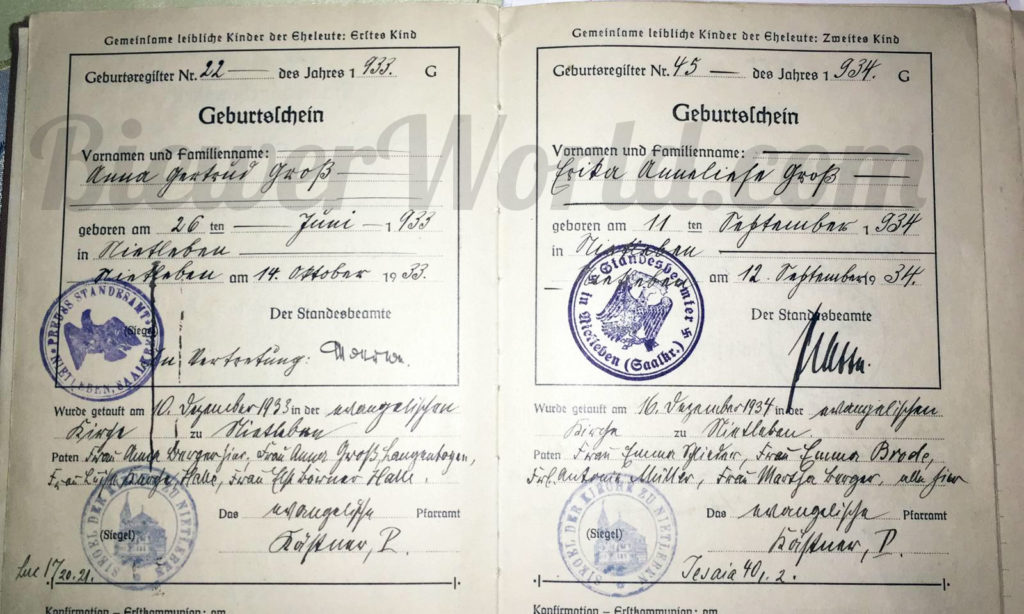 Gemeinsame leibliche Kinder der Eheleute: Erstes Kind
Geburtsregister Nr. 22 des Jahres 1933. G
Geburtsschein
Vornamen und Familienname:
Anna Gertrud Groß
geboren am 26 ten Juni 1933
in Nietleben
Nietleben am 14. Oktober 1933.
PREUSS STANDESAMT
NIETLEBEN, SAALKR.
(Siegel)
Der Standesbeamte
In Vertretung:
Wurde getauft am 10. Dezember 1933 in der evangelischen
Kirche zu Nietleben
Paten Frau Anna Berger hier, Frau Anna Groß Langenbogen,
Frau Halle, Frau Elsb. Börner Halle.
SIEGEL DER KIRCHE ZU NIETLEBEN
(Siegel)
Das evangelische Pfarramt
Kästner, P.
Luc 17/20.21.
Konfirmation – Erstkommunion: am
Gemeinsame leibliche Kinder der Eheleute: Zweites Kind
Geburtsregister Nr. 45 des Jahres 1934. G
Geburtsschein
Vornamen und Familienname:
Erika Anneliese Groß
geboren am 11 ten September 1934
in Nietleben
Nietleben am 12. September 1934.
Der Standesbeamte in Nietleben (Saalkr.)
Der Standesbeamte
Wurde getauft am 16. Dezember 1934 in der evangelischen
Kirche zu Nietleben
Paten Frau Emma Schieder, Frau Emma Brode,
Frl. Antonie Müller, Frau Martha Berger, alle hier
SIEGEL DER KIRCHE ZU NIETLEBEN
(Siegel)
Das evangelische Pfarramt
Kästner, P.
Jesaia 40 1. 2.
Konfirmation – Erstkommunion: am
BiewerWorld.com